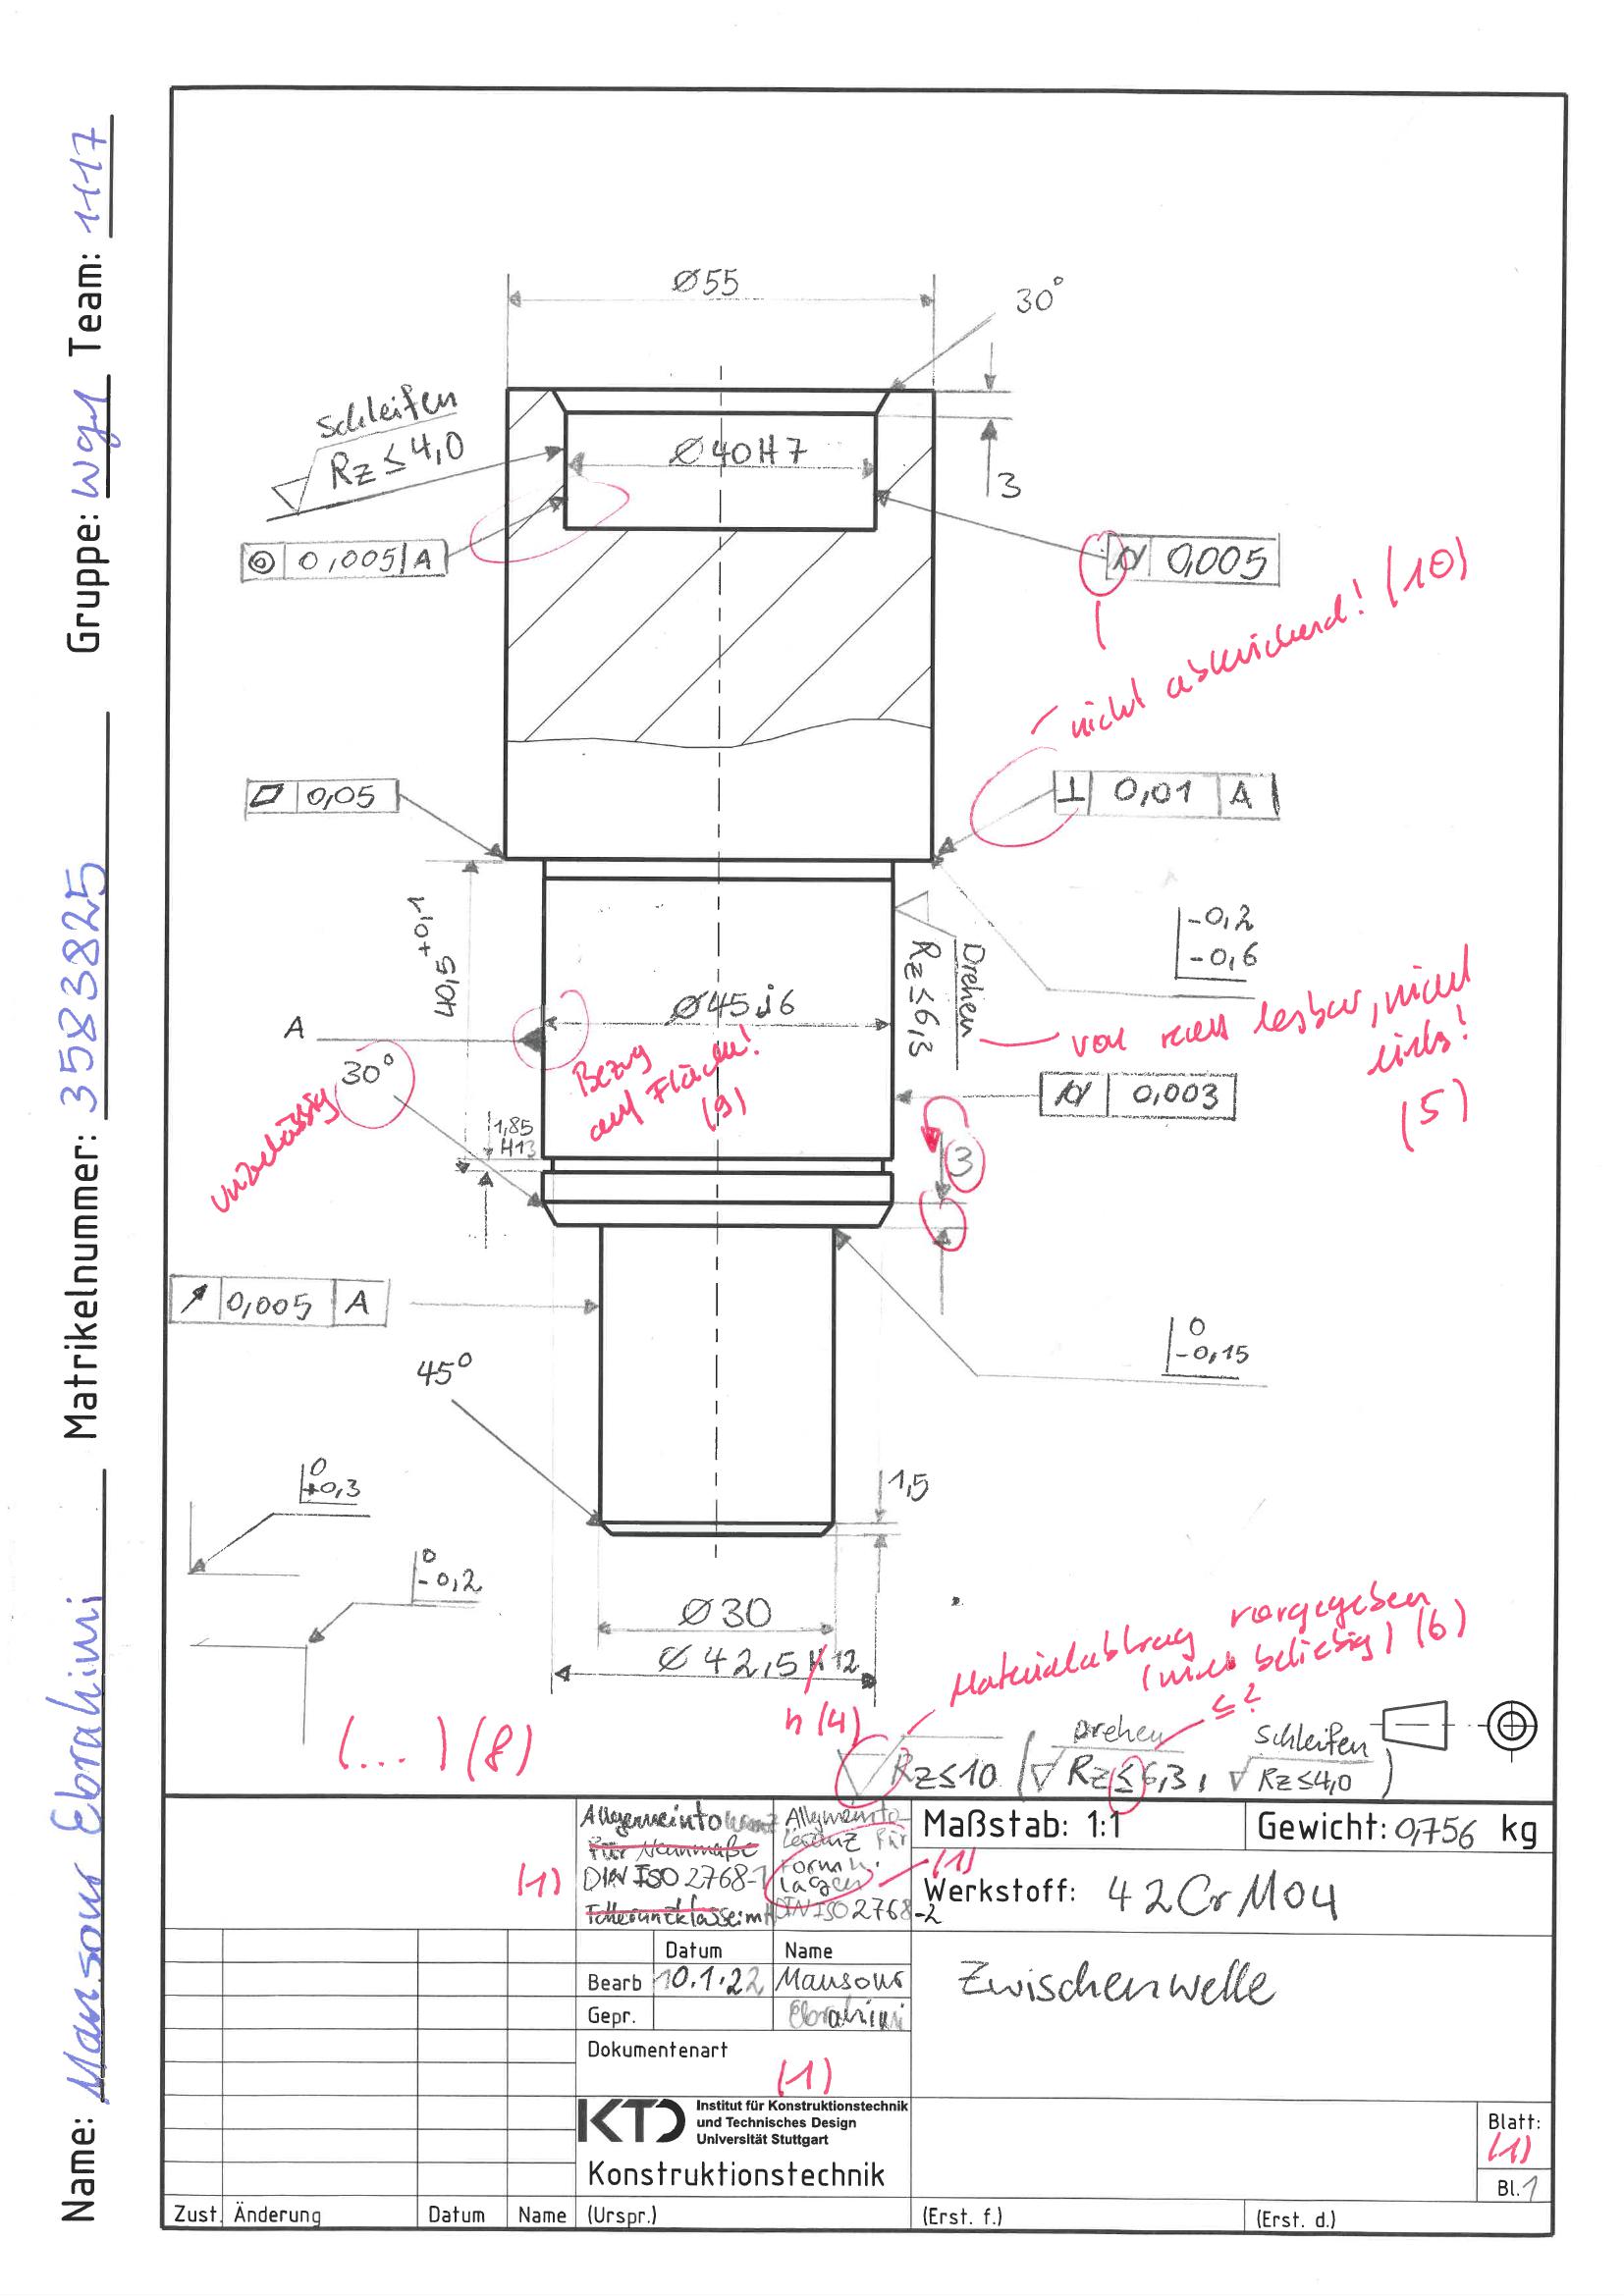 Name: Mansour Ebrahimi Matrikelnummer: 3583825 Gruppe: Wgl Team: 1117
Ø55
30°
Schleifen
Rz ≤ 4,0
Ø40H7
3
◎ 0,005 A
⌭ 0,005
nicht abknickend! (10)
⏥ 0,05
⊥ 0,01 A
40,5 +0,1
-0,2
-0,6
Drehen
Rz ≤ 6,3
Ø45j6
A
von rechts lesbar, nicht
links!
(5)
30°
unzulässig
Bezug
auf Fläche!
(9)
⌭ 0,003
1,85
H13
3
↗ 0,005 A
0
-0,15
45°
1,5
0
+0,3
0
-0,2
Ø30
Ø42,5 H12
h (4)
Materialabtrag vorgegeben
(nicht beliebig) (6)
≤?
(...) (8)
Rz ≤ 10 (Drehen Rz ≤ 6,3, Schleifen Rz ≤ 4,0)
Allgemeintoleranz
für Nennmaße
DIN ISO 2768-1
(1)
Allgemeinto-
leranz für
Form u.
Lagen
DIN ISO 2768-2
(1)
Maßstab: 1:1
Gewicht: 0,756 kg
Werkstoff: 42CrMo4
Datum Name
Bearb 10.1.22 Mansour
Gepr. Ebrahimi
Zwischenwelle
Dokumentenart
(1)
KTD Institut für Konstruktionstechnik
und Technisches Design
Universität Stuttgart
Konstruktionstechnik
Blatt:
(1)
Bl. 1
Zust. Änderung Datum Name (Urspr.) (Erst. f.) (Erst. d.)